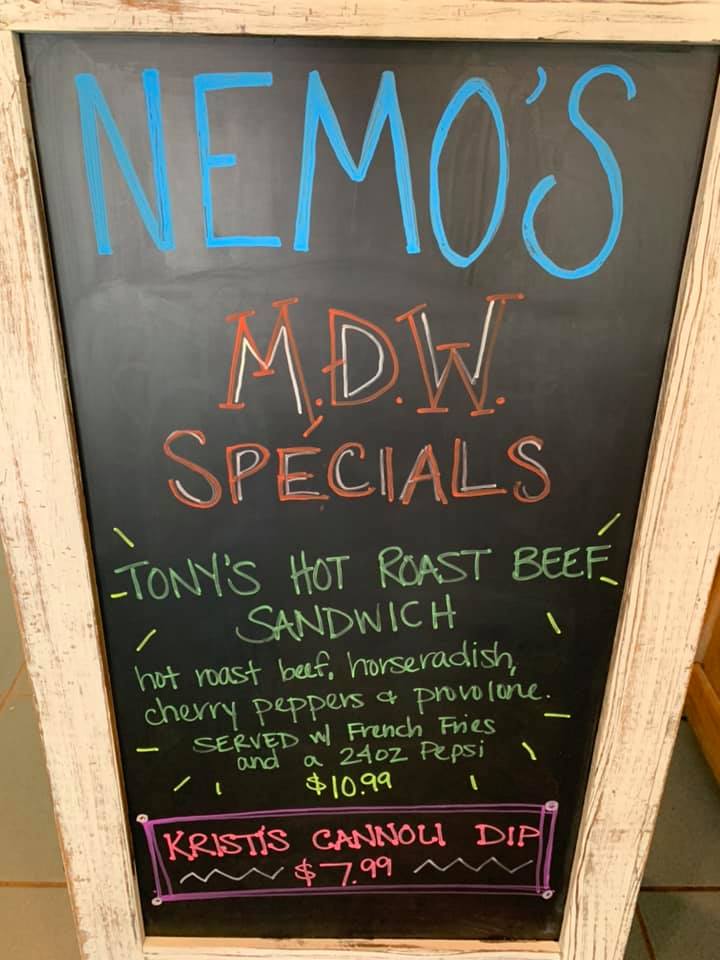 NEMO'S
M.D.W.
SPECIALS
TONY'S HOT ROAST BEEF
SANDWICH
hot roast beef, horseradish,
cherry peppers & provolone.
SERVED w/ French Fries
and a 24oz Pepsi
$10.99
KRISTI'S CANNOLI DIP
$7.99